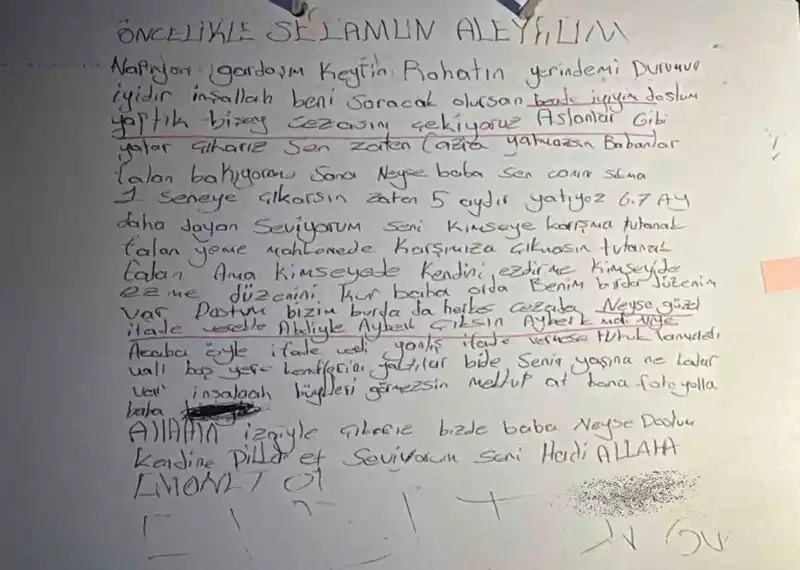 ÖNCELİKLE SELAMUN ALEYKUM
Napıyon gardaşım Keyfin Rahatın yerindemi Durumun
iyidir inşallah beni soracak olursan bende iyiyim dostum
yaptık bizey cezasını çekiyoruz Aslanlar Gibi
yatar çıkarız sen zaten fazla yatmazsın Babanlar
falan bakıyorum sana Neyse baba sen canını sıkma
1 seneye çıkarsın zaten 5 aydır yatıyoz 6.7 Ay
daha dayan Seviyorum seni kimseye karışma tutanak
falan yeme mahkemede karşımıza çıkmasın tutanak
falan Ama kimseyede kendini ezdirme kimseyide
ezme düzenini kur baba orda Benim burda düzenim
var Dostum bizim burda da herkes cezada Neyse güzel
ifade verelim Abdiyle Ayberk çıksın Ayberk niye
Acaba öyle ifade verdi yanlış ifade vermese tutuklanmazdı
vall boş yere yaktılar bide Senin yaşına ne kadar
vall insalaah böyleleri görmezsin mektup at bana foto yolla
baba
Allahın izniyle çıkarız bizde baba Neyse Dostum
kendine Dikkat et Seviyorum seni Hadi ALLAHA
EMANET OL